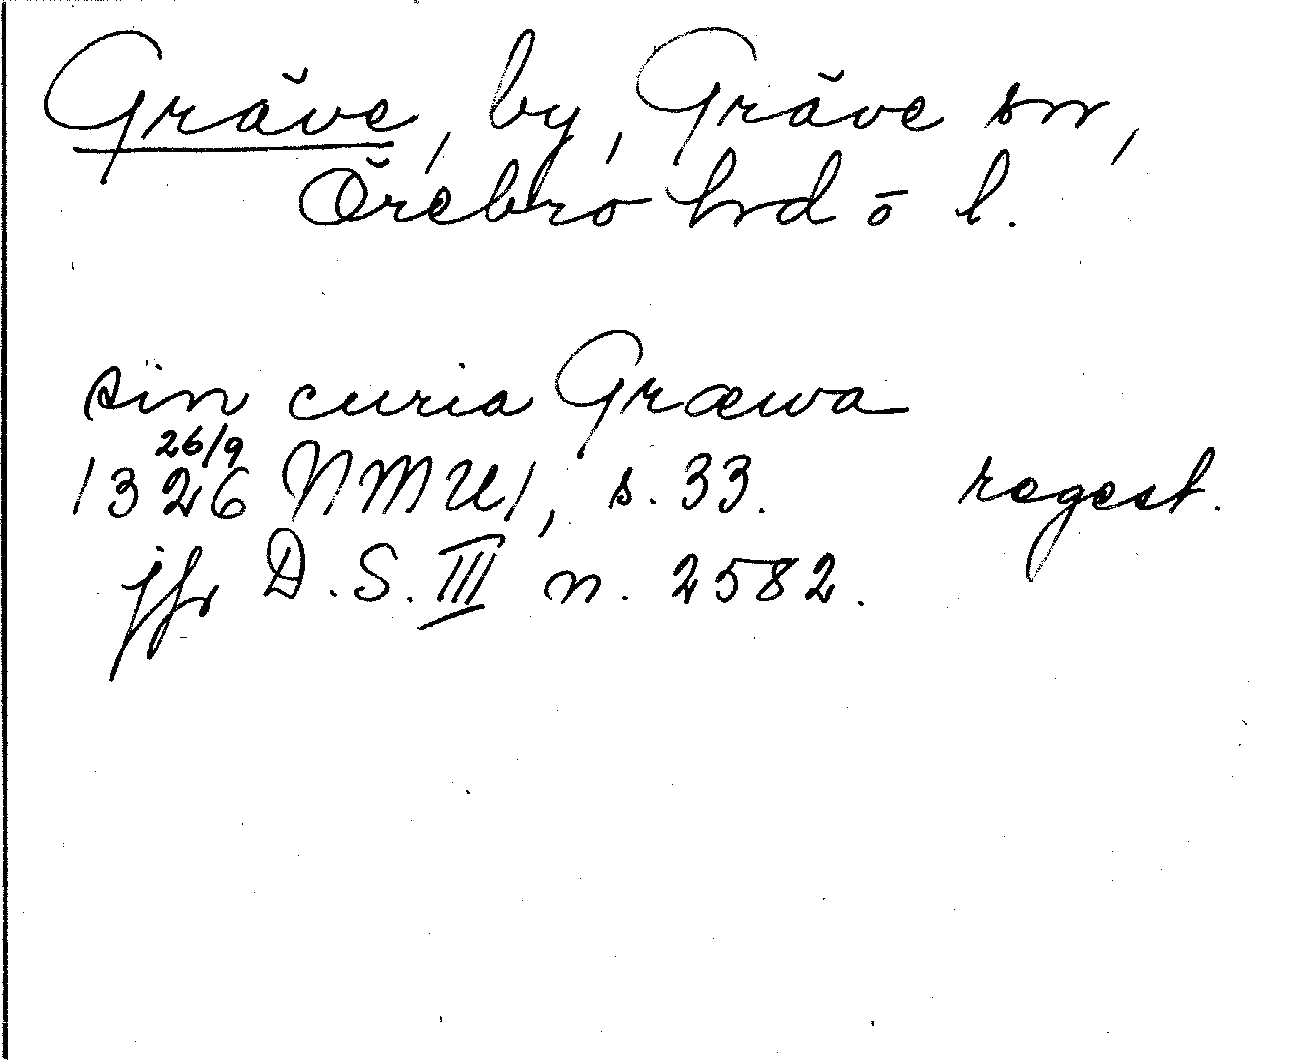 Gräve, by, Gräve sn,
Örebro hrd o l.
sin curia Græwa
26/9
1326 NMU1, s. 33. regest.
jfr D. S. III n. 2582.